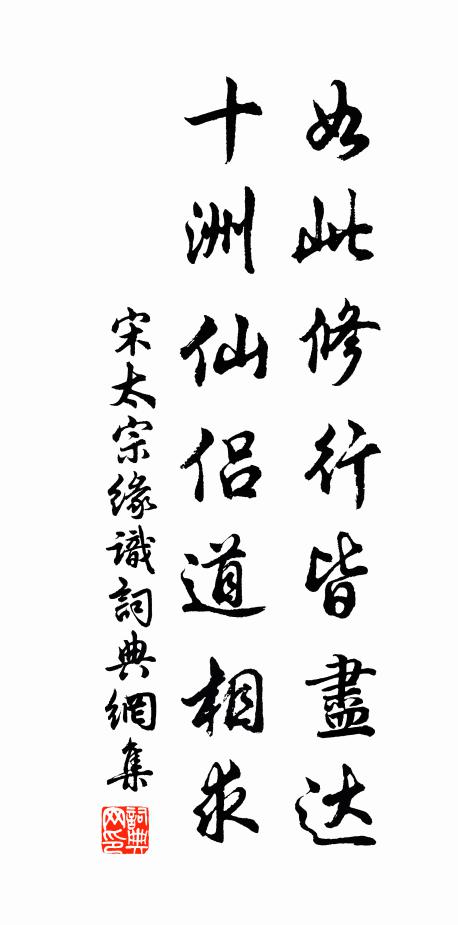 如此修行皆盡达
十洲仙侣道相求
宋太宗緣識詞典網集
詞典网印